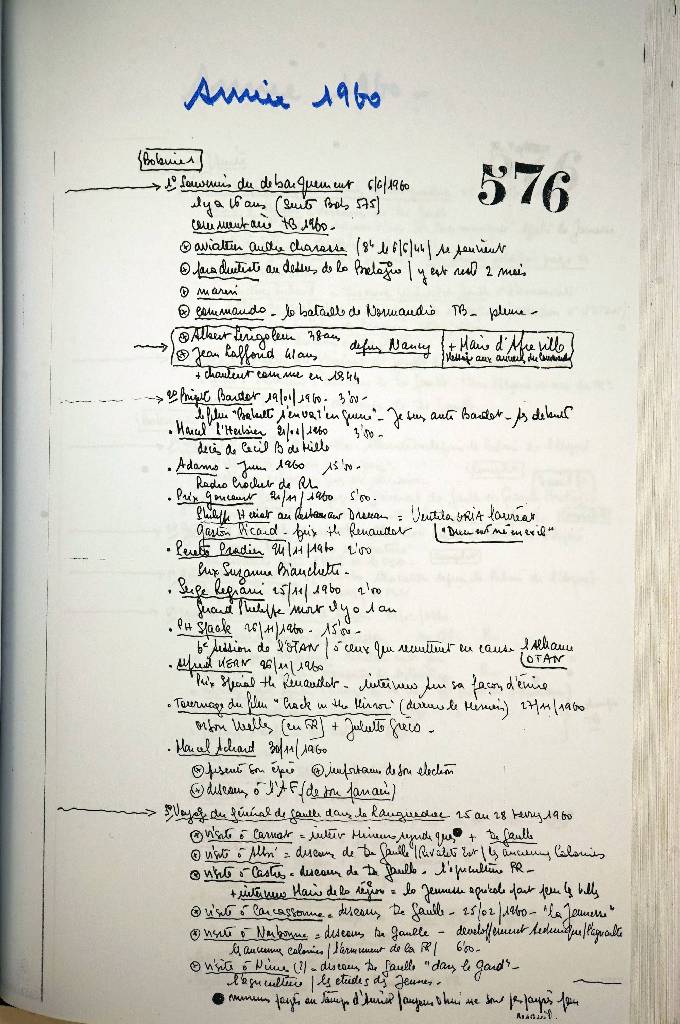 Année 1960
Bobine 1
576
1° Souvenirs du débarquement 6/6/1960
il y a 16 ans (suite Bob 575)
commentaire TB 1960.
aviateur andre charasse (8h le 6/6/44) se souvient
parachutiste au dessus de la Bretagne / y est resté 2 mois
marin
commando - la bataille de Normandie TB - pleure -
Albert 38 ans
Jean Laffond 41 ans
depuis Nancy
+ Maire d'Afreville
+ chantent comme en 1944
2° Brigit Bardot 19/01/1960 - 3'00 -
le film "Babette s'en va t'en guerre" - Je suis anti Bardot - ses débuts
Marcel l'Herbier 21/01/1960 3'00 -
décès de Cecil B de Mille
Adamo - Juin 1960 15'00 -
Radio Crochet de RL
Prix goncourt 21/11/1960 5'00 -
Philippe Heriat au Restaurant Drouan = Ventila ORIA lauréat
Gaston Picard - prix th Renaudot "Dieu est né en exil"
24/11/1960 2'00
Prix Suzanne Bianchetti -
Serge Regiani 25/11/1960 2'00
Gerard Philippe mort il y a 1 an
PH Spaak 26/11/1960 - 15'00 -
6e session de l'OTAN / à ceux qui remettent en cause l'alliance
OTAN
Alfred KERN 26/11/1960
Prix Special th Renaudot - interview sur sa façon d'écrire
Tournage du film "Crack in the Mirror" (derriere le Miroir) 27/11/1960
orson Welles (en FR) + Juliette Gréco -
Marcel Achard 30/11/1960
présente son épée importance de son election
discours à l'AF (de son parrain)
3° Voyage du Général de gaulle dans le Languedoc 25 au 28 fevrier 1960
visite à Carmat = interv Mineurs syndiqués + De Gaulle
visite à Albi = discours de De Gaulle / Rivalité Est / les anciennes Colonies
visite à Castres = discours de De Gaulle - l'agriculture FR -
+ interview Maire de la région = la Jeunesse agricole part pour les villes
visite à Carcassonne = discours De Gaulle - 25/02/1960 - "la Jeunesse"
visite à Narbonne = discours De Gaulle - developpement technique / l'agriculte
les anciennes colonies / l'armement de la FR / 6'00 -
visite à Nîmes (?) - discours De Gaulle "dans le Gard" -
l'agriculture / les études des Jeunes -